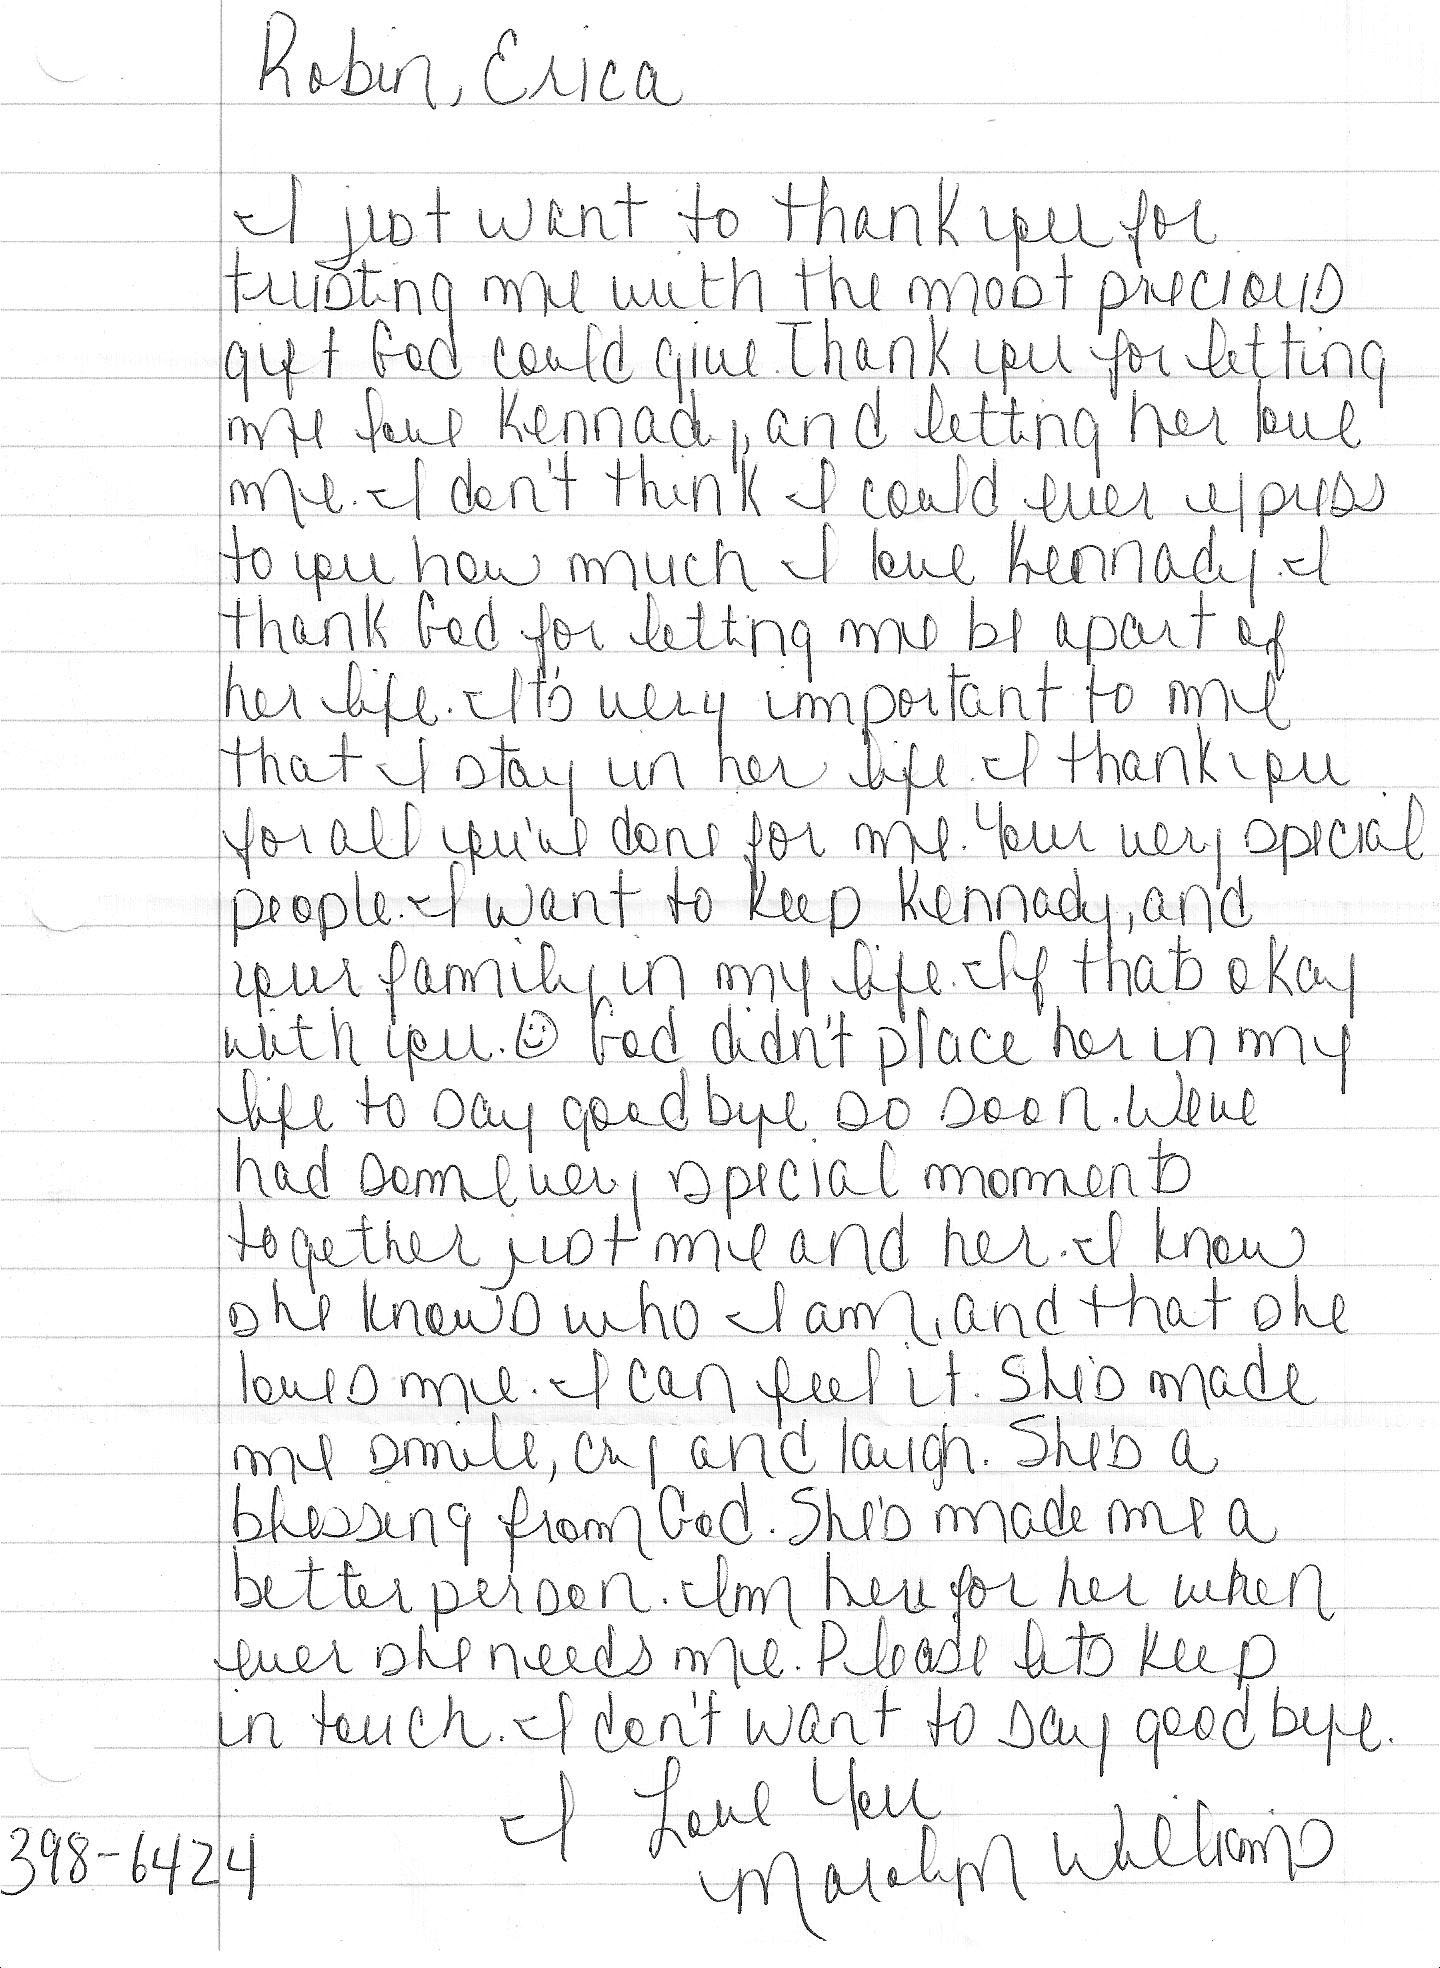 Robin, Erica
I just want to thank you for
trusting me with the most precious
gift God could give. Thank you for letting
me love Kennady, and letting her love
me. I don't think I could ever express
to you how much I love Kennady. I
thank God for letting me be apart of
her life. It's very important to me
that I stay in her life. I thank you
for all you've done for me. Your very special
people. I want to keep Kennady, and
your family in my life. If thats okay
with you. ☺ God didn't place her in my
life to say goodbye so soon. Weve
had some very special moments
together just me and her. I know
she knows who I am, and that she
loves me. I can feel it. She's made
me smile, cry and laugh. She's a
blessing from God. She's made me a
better person. Im here for her when
ever she needs me. Please lets keep
in touch. I don't want to say good bye.
I Love You
Maralyn Williams
398-6424